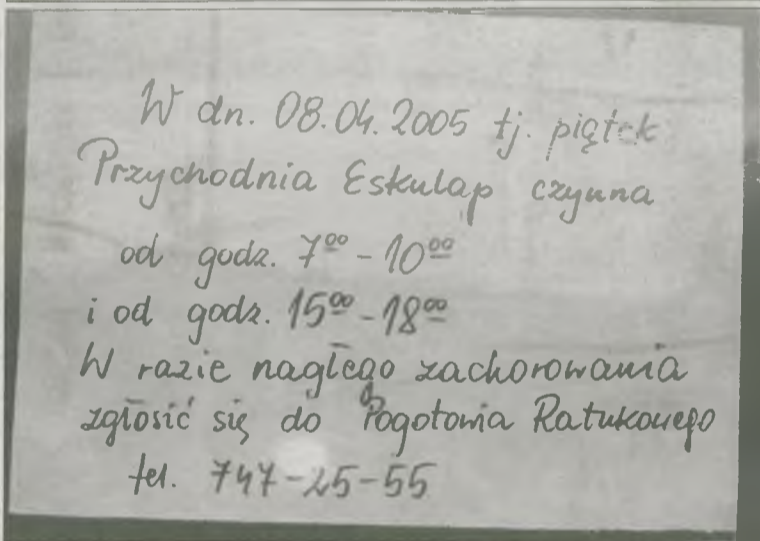 W dn. 08.04.2005 tj. piątek
Przychodnia Eskulap czynna
od godz. 7⁰⁰ - 10⁰⁰
i od godz. 15⁰⁰ - 18⁰⁰
W razie nagłego zachorowania
zgłosić się do Pogotowia Ratukowego
tel. 747-25-55